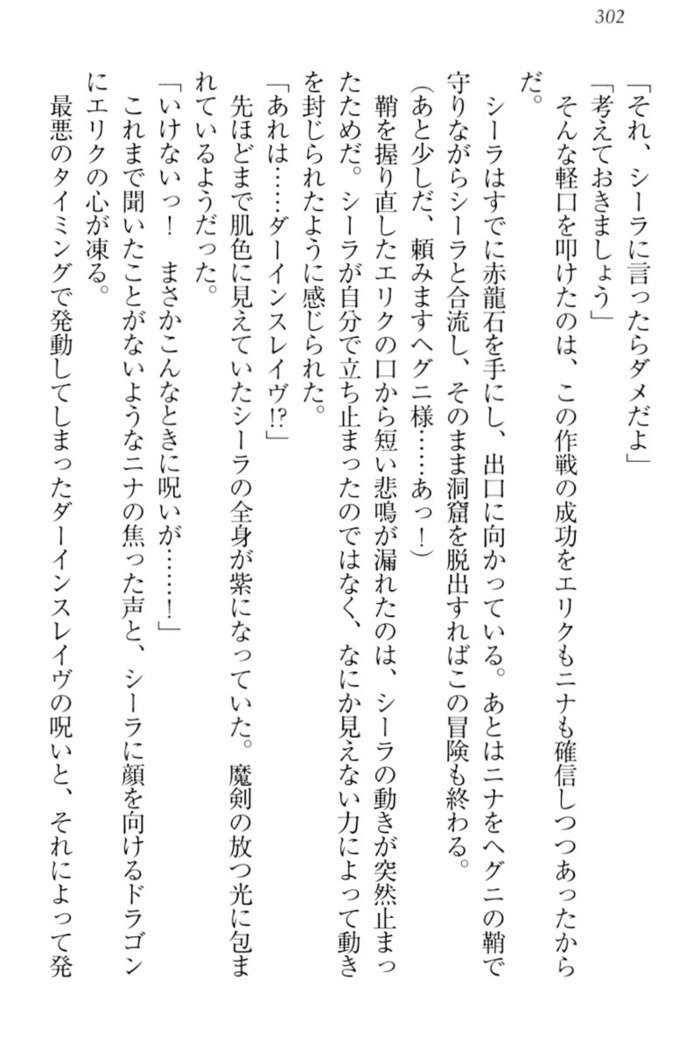 302
「それ、シーラに言ったらダメだよ」
「考えておきましょう」
　そんな軽口を叩けたのは、この作戦の成功をエリクもニナも確信しつつあったから
だ。
　シーラはすでに赤龍石を手にし、出口に向かっている。あとはニナをヘグニの鞘で
守りながらシーラと合流し、そのまま洞窟を脱出すればこの冒険も終わる。
（あと少しだ、頼みますヘグニ様……あっ！）
　鞘を握り直したエリクの口から短い悲鳴が漏れたのは、シーラの動きが突然止まっ
たためだ。シーラが自分で立ち止まったのではなく、なにか見えない力によって動き
を封じられたように感じられた。
「あれは……ダーインスレイヴ!?」
　先ほどまで肌色に見えていたシーラの全身が紫になっていた。魔剣の放つ光に包ま
れているようだった。
「いけないっ！　まさかこんなときに呪いが……！」
　これまで聞いたことがないようなニナの焦った声と、シーラに顔を向けるドラゴン
にエリクの心が凍る。
　最悪のタイミングで発動してしまったダーインスレイヴの呪いと、それによって発